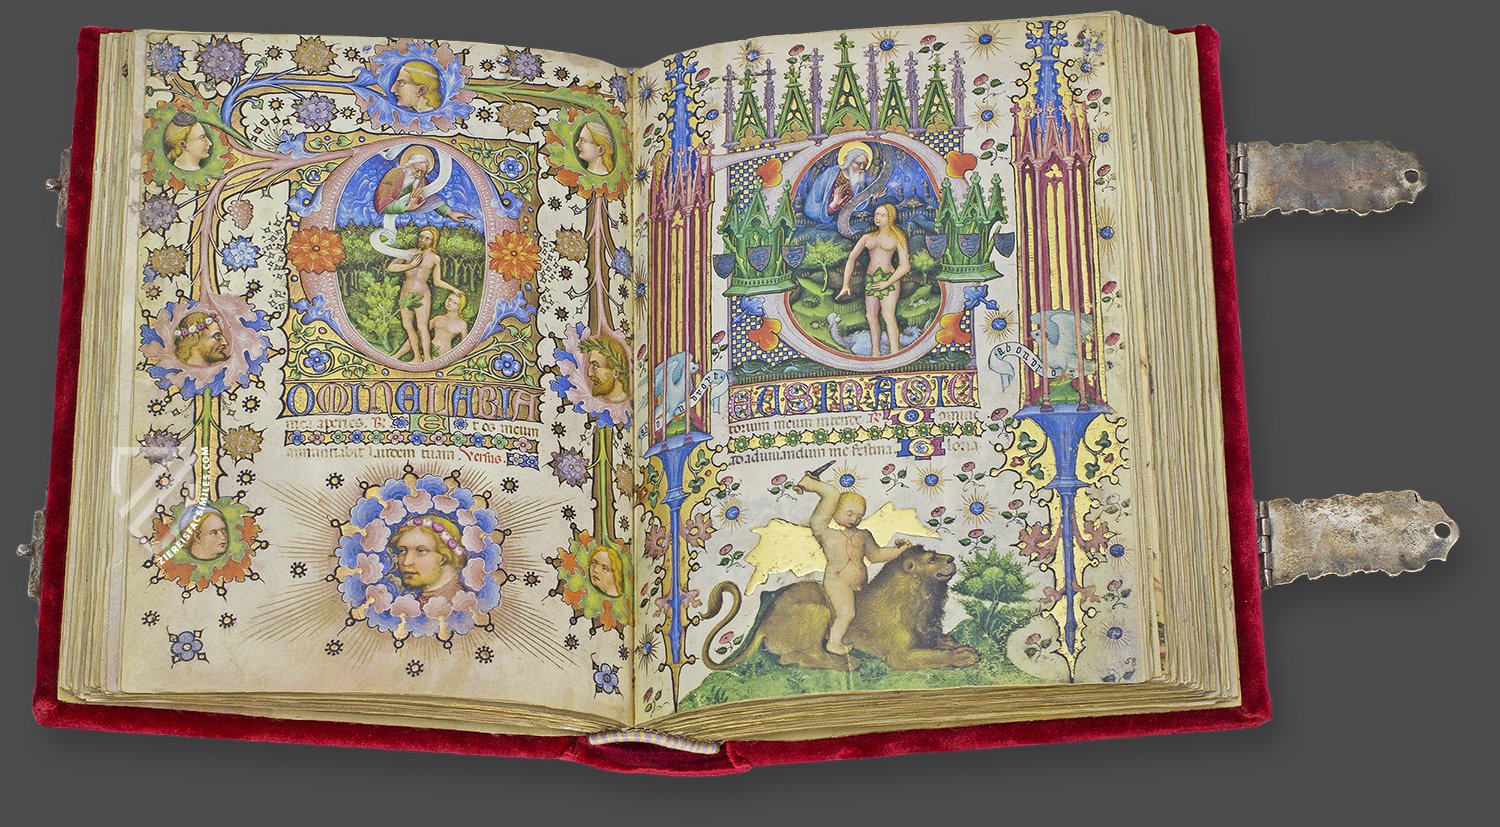 DOMINE LABIA
mea aperies. ℟ Et os meum
annuntiabit laudem tuam. Versus.
DEUS IN ADIU
torium meum intende. ℟ Domine
ad adiuvandum me festina. Gloria
a bon dr
58
ZIEREISFACSIMILES.COM